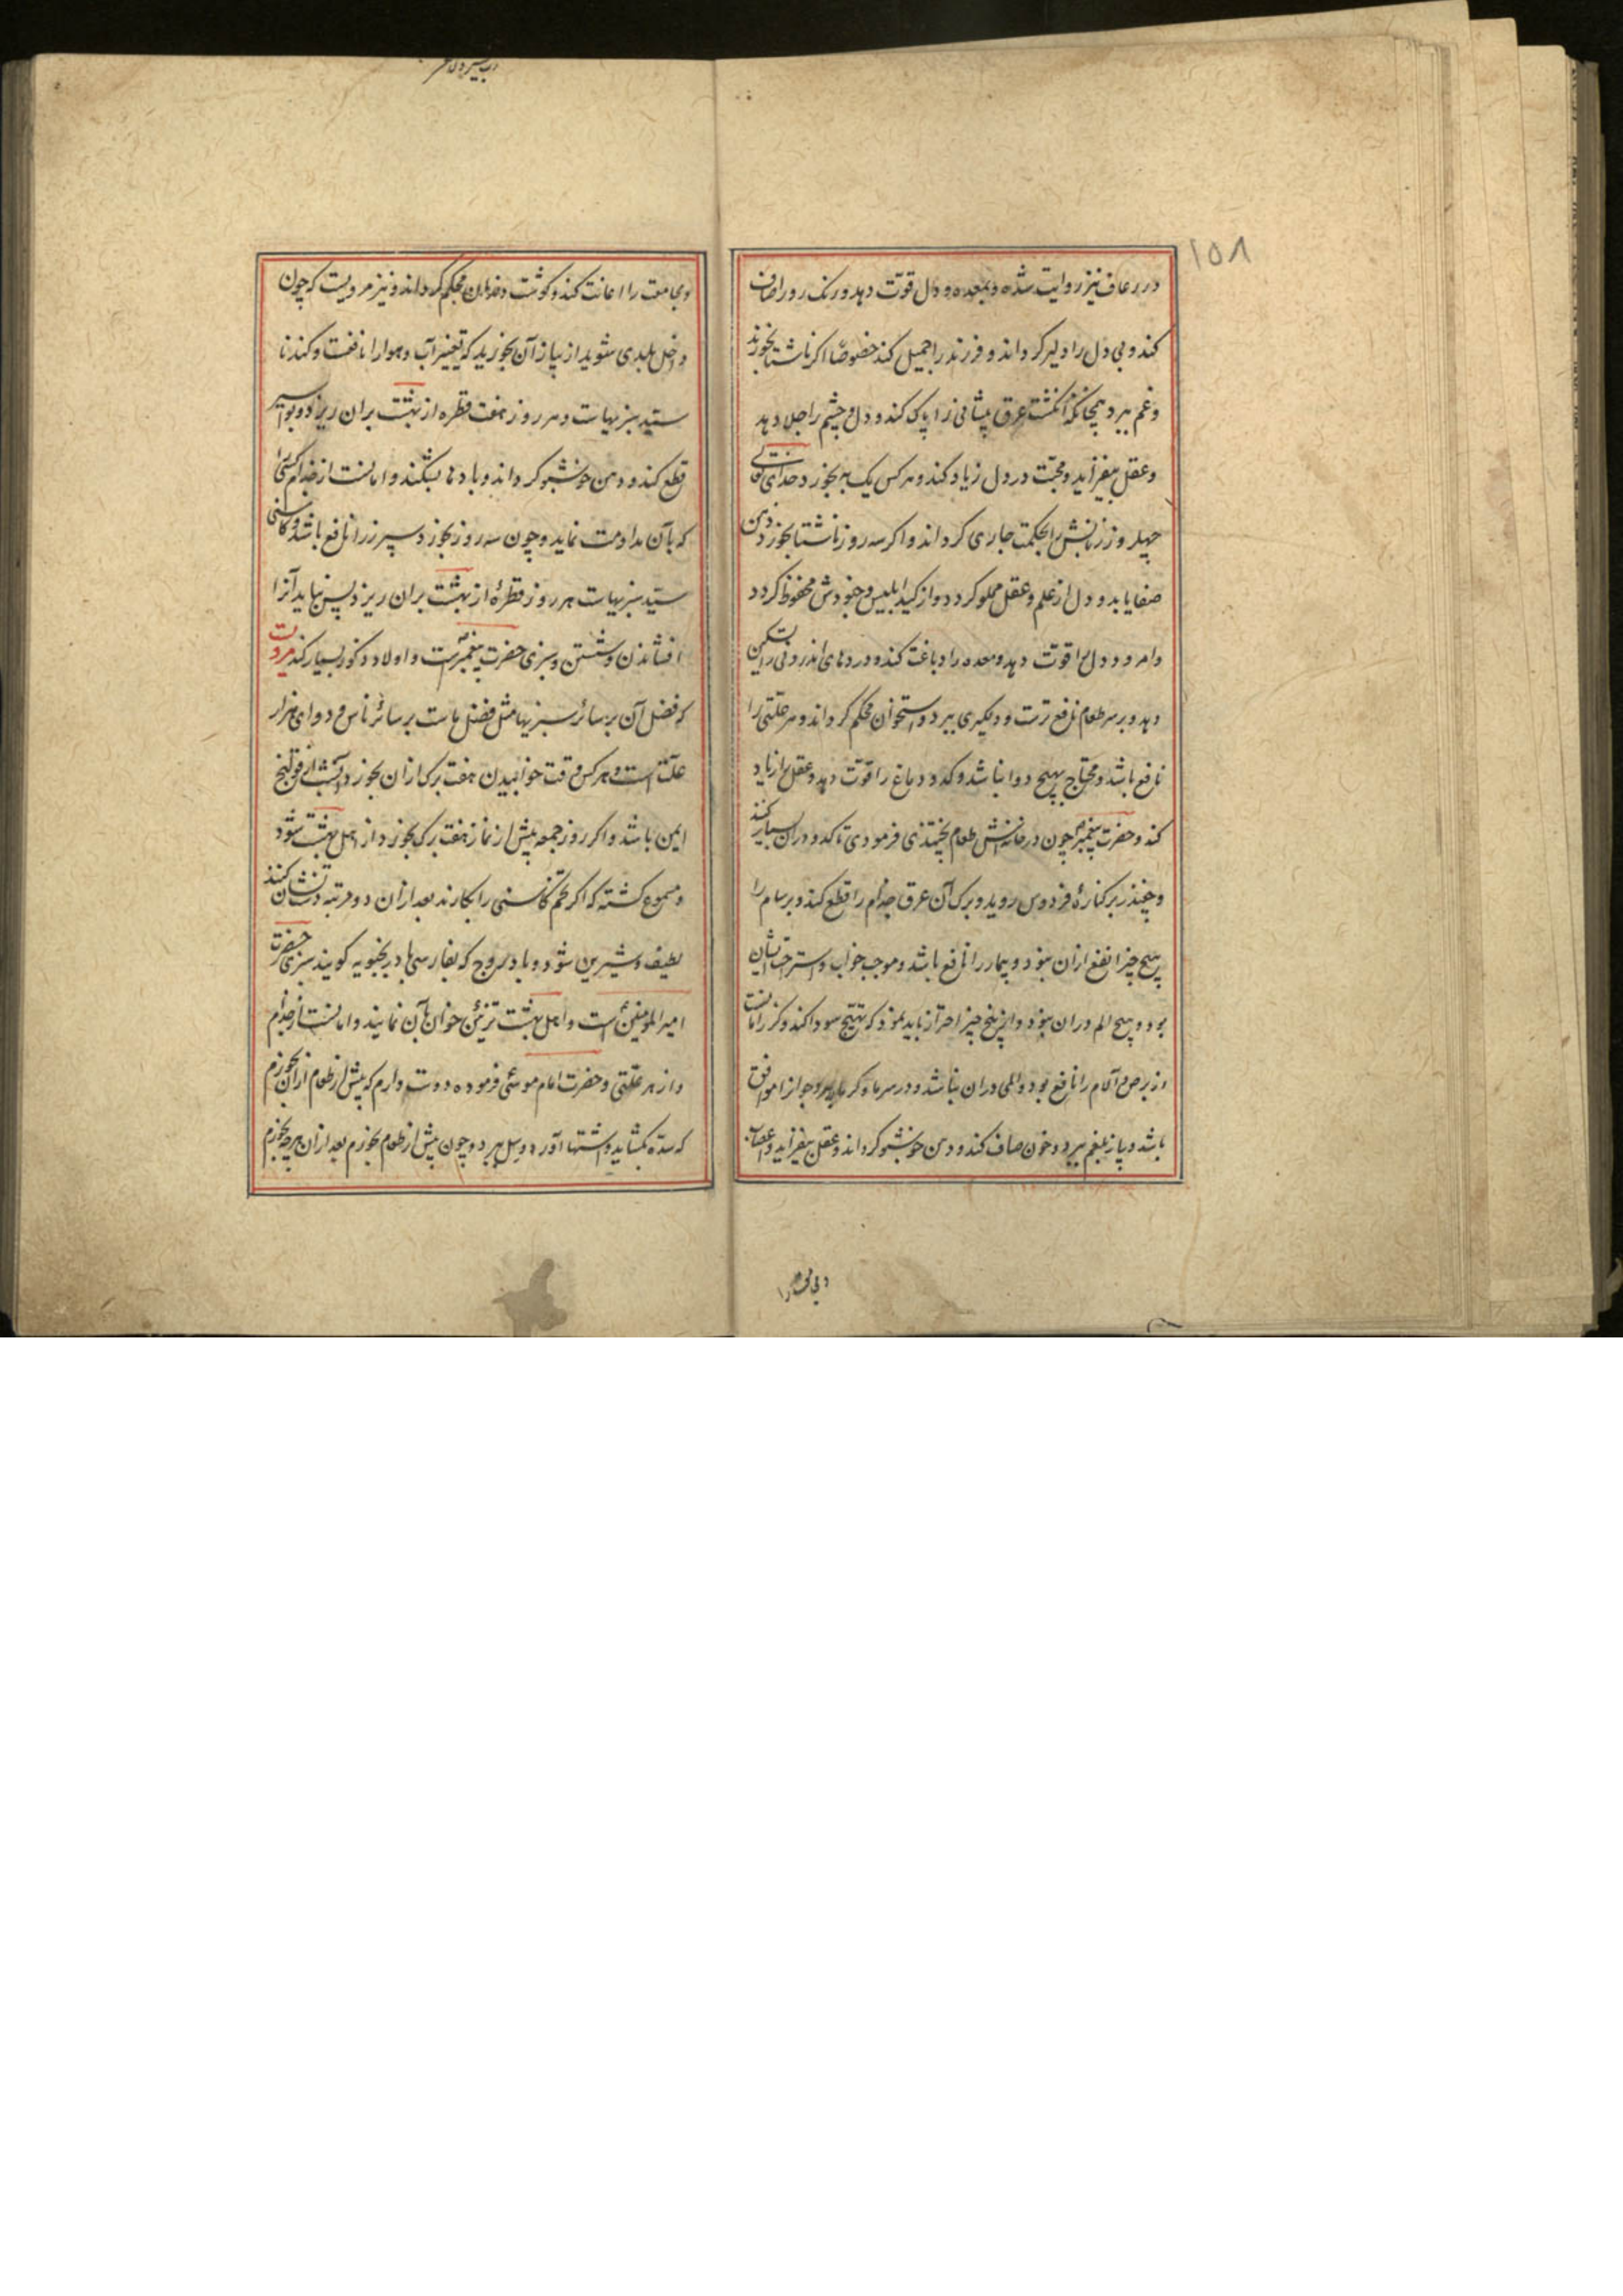 ۱۵۸
در رعاف نیز روایت شده و بمعده و دل قوّت دهد و رنک رو را صاف
کند و بی دل را دلیر کرداند و فرزند را جمیل کند خصوصًا اکر ناشتا بخورند
و غم ببرد همچنانکه انکشت عرق پیشانی را پاک کند و دل و چشم را جلا دهد
و عقل بیفزاید و محبّت در دل زیاد کند و هر کس یک به بخورد خدای تعالی
چهل روز زبانش را بحکمت جاری کرداند و اکر سه روز ناشتا بخورد ذهن
صفا یابد و دل از علم و عقل مملو کردد و از کید ابلیس و جنودش محفوظ کردد
و امرود دل را قوّت دهد و معده را دباغت کند و دردهای اندرونی را تسکین
دهد و بر سر طعام نافع ترست و دیکری ببرد و استخوان محکم کرداند و هر علّتی را
نافع باشد و محتاج بهیچ دوا نباشد و کدو دماغ را قوّت دهد و عقل را زیاد
کند و حضرت پیغمبر چون در خانه‌اش طعام پختندی فرمودی تا کدو در آن بسیار کنند
و چغندر بر کنارهٔ فردوس روید و برک آن عرق جذام را قطع کند و برسام را
هیچ چیز انفع از ان نبود و بیمار را نافع باشد و موجب خواب و استراحت ایشان
بود و هیچ الم در ان نبود و از بیخ چیز احتراز باید نمود که تهیّج سودا کند و کزر امانست
از برص و آلام را نافع بود و المی در ان نباشد و در سرما و کرما پیر و جوانرا موافق
باشد و پیاز بلغم ببرد و خون صاف کند و دهن خوشبو کرداند و عقل بیفزاید و اعصاب
و مجامعت را اعانت کند و کوشت دندان محکم کرداند و نیز مرویست که چون
داخل بلدی شوید از پیاز آن بخورید که تغییر آب و هوا را نافعست و کندنا
سیّد سبزیهاست و هر روز هفت قطره از بهشت بران ریزد و بواسیر
قطع کند و دهن خوشبو کرداند و بادها بشکند و امانست از جذام کسی را
که بآن مداومت نماید و چون سه روز بخورد سپرز را نافع باشد و کاسنی
سیّد سبزیهاست هر روز قطرهٔ از بهشت بران ریزد پس نباید آنرا
افشاندن و شستن و سبزی حضرت پیغمبر است و اولاد ذکور بسیار کند مرویست
که فضل آن بر سائر سبزیها مثل فضل ماست بر سائر ناس و دوای هزار
علّت است و هر کس وقت خوابیدن هفت برک از ان بخورد آن شب از قولنج
ایمن باشد و اکر روز جمعه پیش از نماز هفت برک بخورد از اهل بهشت شود
و مسموع کشته که اکر تخم کاسنی را بکارند بعد از ان دو مرتبه نشان کنند
لطیف و شیرین شود و بادروج که بفارسی بادرنجبویه کویند سبزی حضرت
امیر المؤمنین است و اهل بهشت تزیین خوان بآن نمایند و امانست از جذام
و از هر علّتی و حضرت امام موسی فرموده دوست دارم که پیش از طعام از ان بخورم
که سدّه بکشاید و اشتها آورد و سل ببرد و چون پیش از طعام بخورم بعد از ان هر چه بخورم